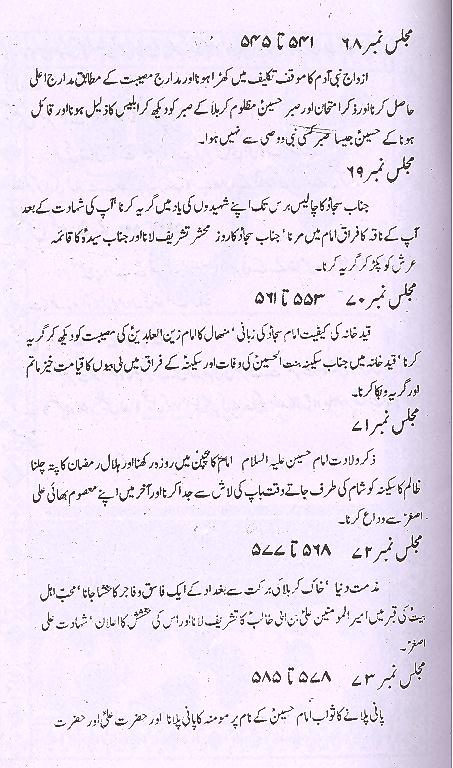 مجلس نمبر ۶۸ ۵۴۱ تا ۵۴۵
ازواج نبی آدم کا موقف تکلیف میں کھڑا ہونا اور مدارج مصیبت کے مطابق مدارج اعلی
حاصل کرنا اور ذکر امتحان اور صبر حسینؑ مظلوم کربلا کے صبر کو دیکھ کر ابلیس کا ذلیل ہونا اور قائل
ہونا کے حسینؑ جیسا صبر کسی نبی و وصی سے نہیں ہوا۔
مجلس نمبر ۶۹
جناب سجادؑ کا چالیس برس تک اپنے شہیدوں کی یاد میں گریہ کرنا' آپ کی شہادت کے بعد
آپ کے ناقہ کا فراق امام میں مرنا' جناب سجادؑ کا روز محشر تشریف لانا اور جناب سیدہؑ کا قائمہ
عرش کو پکڑ کر گریہ کرنا۔
مجلس نمبر ۷۰ ۵۵۳ تا ۵۶۱
قید خانہ کی کیفیت امام سجادؑ کی زبانی' منہال کا امام زین العابدینؑ کی مصیبت کو دیکھ کر گریہ
کرنا' قید خانہ میں جناب سکینہ بنت الحسینؑ کی وفات اور سکینہؑ کے فراق میں بی بیوں کا قیامت خیز ماتم
اور گریہ و بکا کرنا۔
مجلس نمبر ۷۱
ذکر ولادت امام حسین علیہ السلام امامؑ کا بچپن میں روزہ رکھنا اور ہلال رمضان کا پتہ چلنا
ظالم کا سکینہ کو شام کی طرف جاتے وقت باپ کی لاش سے جدا کرنا اور آخر میں اپنے معصوم بھائی علی
اصغرؑ سے وداع کرنا۔
مجلس نمبر ۷۲ ۵۶۸ تا ۵۷۷
مذمت دنیا' خاک کربلا کی برکت سے بغداد کے ایک فاسق و فاجر کا بخشا جانا' محب اہل
بیتؑ کی قبر میں امیر المومنین علیؑ بن ابی طالبؑ کا تشریف لانا اور اس کی بخشش کا اعلان' شہادت علی
اصغرؑ۔
مجلس نمبر ۷۳ ۵۷۸ تا ۵۸۵
پانی پلانے کا ثواب امام حسینؑ کے نام پر مومنہ کا پانی پلانا اور حضرت علیؑ اور حضرت